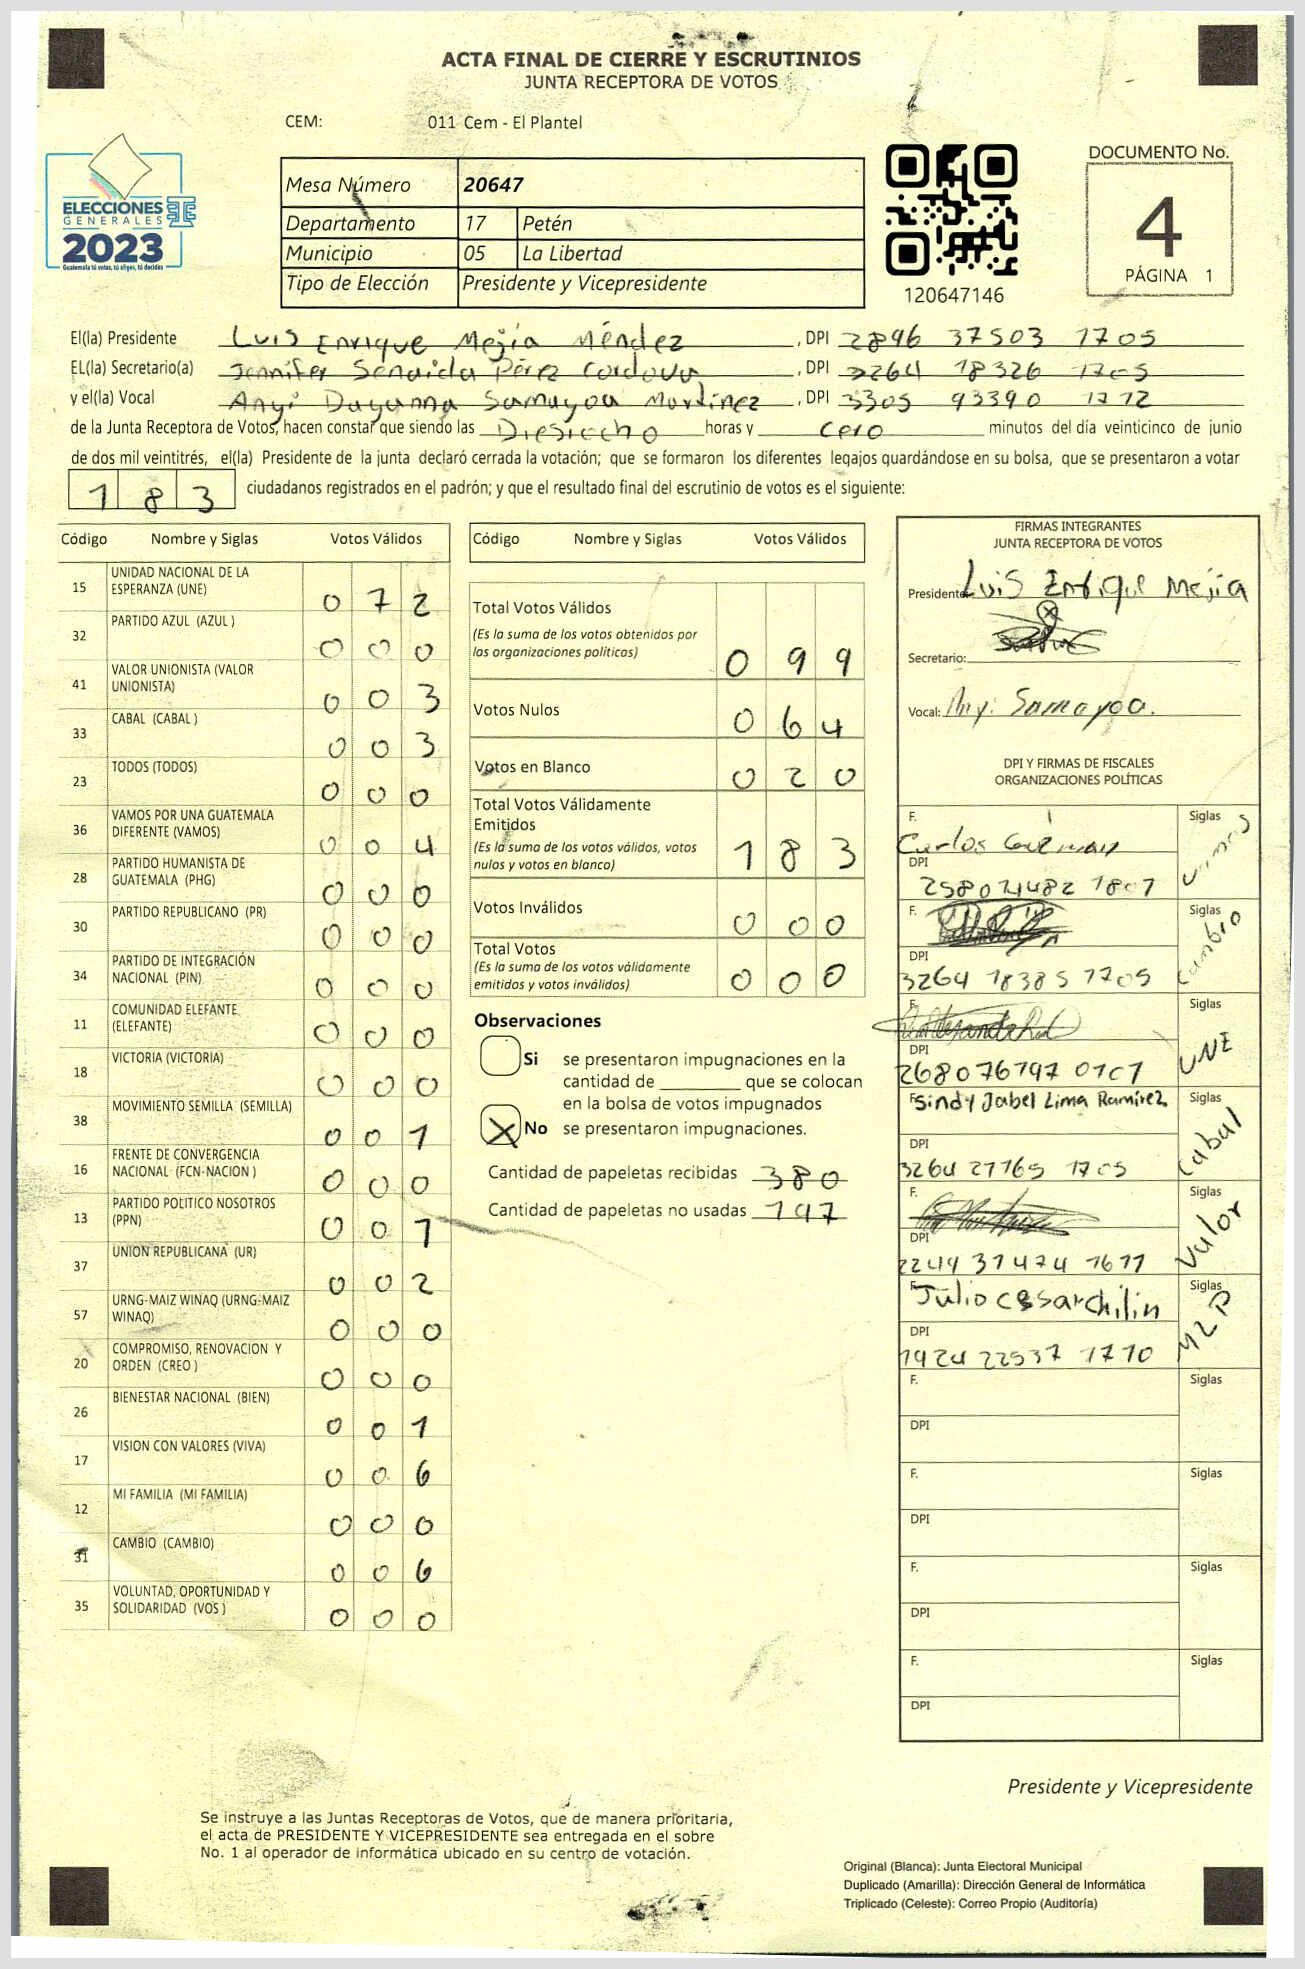 ACTA FINAL DE CIERRE Y ESCRUTINIOS
JUNTA RECEPTORA DE VOTOS
CEM: 011 Cem - El Plantel
ELECCIONES
GENERALES
2023
Guatemala tú votas, tú eliges, tú decides
Mesa Número 20647
Departamento 17 Petén
Municipio 05 La Libertad
Tipo de Elección Presidente y Vicepresidente
120647146
DOCUMENTO No.
4
PÁGINA 1
El(la) Presidente Luis Enrique Mejía Méndez, DPI 2896 37503 1705
EL(la) Secretario(a) Jennifer Senaida Pérez Cordova, DPI 3264 18326 1705
y el(la) Vocal Anyi Dayanna Samayoa Martinez, DPI 3305 93390 1712
de la Junta Receptora de Votos, hacen constar que siendo las Diesiocho horas y cero minutos del día veinticinco de junio
de dos mil veintitrés, el(la) Presidente de la junta declaró cerrada la votación; que se formaron los diferentes legajos quardándose en su bolsa, que se presentaron a votar
183 ciudadanos registrados en el padrón; y que el resultado final del escrutinio de votos es el siguiente:
Código Nombre y Siglas Votos Válidos
15 UNIDAD NACIONAL DE LA ESPERANZA (UNE) 072
32 PARTIDO AZUL (AZUL ) 000
41 VALOR UNIONISTA (VALOR UNIONISTA) 003
33 CABAL (CABAL ) 003
23 TODOS (TODOS) 000
36 VAMOS POR UNA GUATEMALA DIFERENTE (VAMOS) 004
28 PARTIDO HUMANISTA DE GUATEMALA (PHG) 000
30 PARTIDO REPUBLICANO (PR) 000
34 PARTIDO DE INTEGRACIÓN NACIONAL (PIN) 000
11 COMUNIDAD ELEFANTE (ELEFANTE) 000
18 VICTORIA (VICTORIA) 000
38 MOVIMIENTO SEMILLA (SEMILLA) 001
16 FRENTE DE CONVERGENCIA NACIONAL (FCN-NACION ) 000
13 PARTIDO POLITICO NOSOTROS (PPN) 001
37 UNION REPUBLICANA (UR) 002
57 URNG-MAIZ WINAQ (URNG-MAIZ WINAQ) 000
20 COMPROMISO, RENOVACION Y ORDEN (CREO ) 000
26 BIENESTAR NACIONAL (BIEN) 001
17 VISION CON VALORES (VIVA) 006
12 MI FAMILIA (MI FAMILIA) 000
31 CAMBIO (CAMBIO) 006
35 VOLUNTAD, OPORTUNIDAD Y SOLIDARIDAD (VOS ) 000
Código Nombre y Siglas Votos Válidos
Total Votos Válidos 099
(Es la suma de los votos obtenidos por
las organizaciones políticas)
Votos Nulos 064
Votos en Blanco 020
Total Votos Válidamente
Emitidos 183
(Es la suma de los votos válidos, votos
nulos y votos en blanco)
Votos Inválidos 000
Total Votos 000
(Es la suma de los votos válidamente
emitidos y votos inválidos)
Observaciones
Si se presentaron impugnaciones en la
cantidad de ________ que se colocan
en la bolsa de votos impugnados
X No se presentaron impugnaciones.
Cantidad de papeletas recibidas 380
Cantidad de papeletas no usadas 197
FIRMAS INTEGRANTES
JUNTA RECEPTORA DE VOTOS
Presidente: Luis Enrique Mejía
Secretario:
Vocal: Any. Samayoa.
DPI Y FIRMAS DE FISCALES
ORGANIZACIONES POLÍTICAS
F. Carlos Guzman Siglas Vamos
DPI 2580 71482 1807
F. Siglas Cambio
DPI 3264 18385 1705
F. Siglas UNE
DPI 2680 76797 0101
F. Sindy Jabel Lima Ramírez Siglas Cabal
DPI 3264 27765 1705
F. Siglas Valor
DPI 2249 31474 1611
F. Julio Cesar Chilin Siglas MLP
DPI 1924 22537 1710
F. Siglas
DPI
F. Siglas
DPI
F. Siglas
DPI
F. Siglas
DPI
Presidente y Vicepresidente
Se instruye a las Juntas Receptoras de Votos, que de manera prioritaria,
el acta de PRESIDENTE Y VICEPRESIDENTE sea entregada en el sobre
No. 1 al operador de informática ubicado en su centro de votación.
Original (Blanca): Junta Electoral Municipal
Duplicado (Amarilla): Dirección General de Informática
Triplicado (Celeste): Correo Propio (Auditoría)